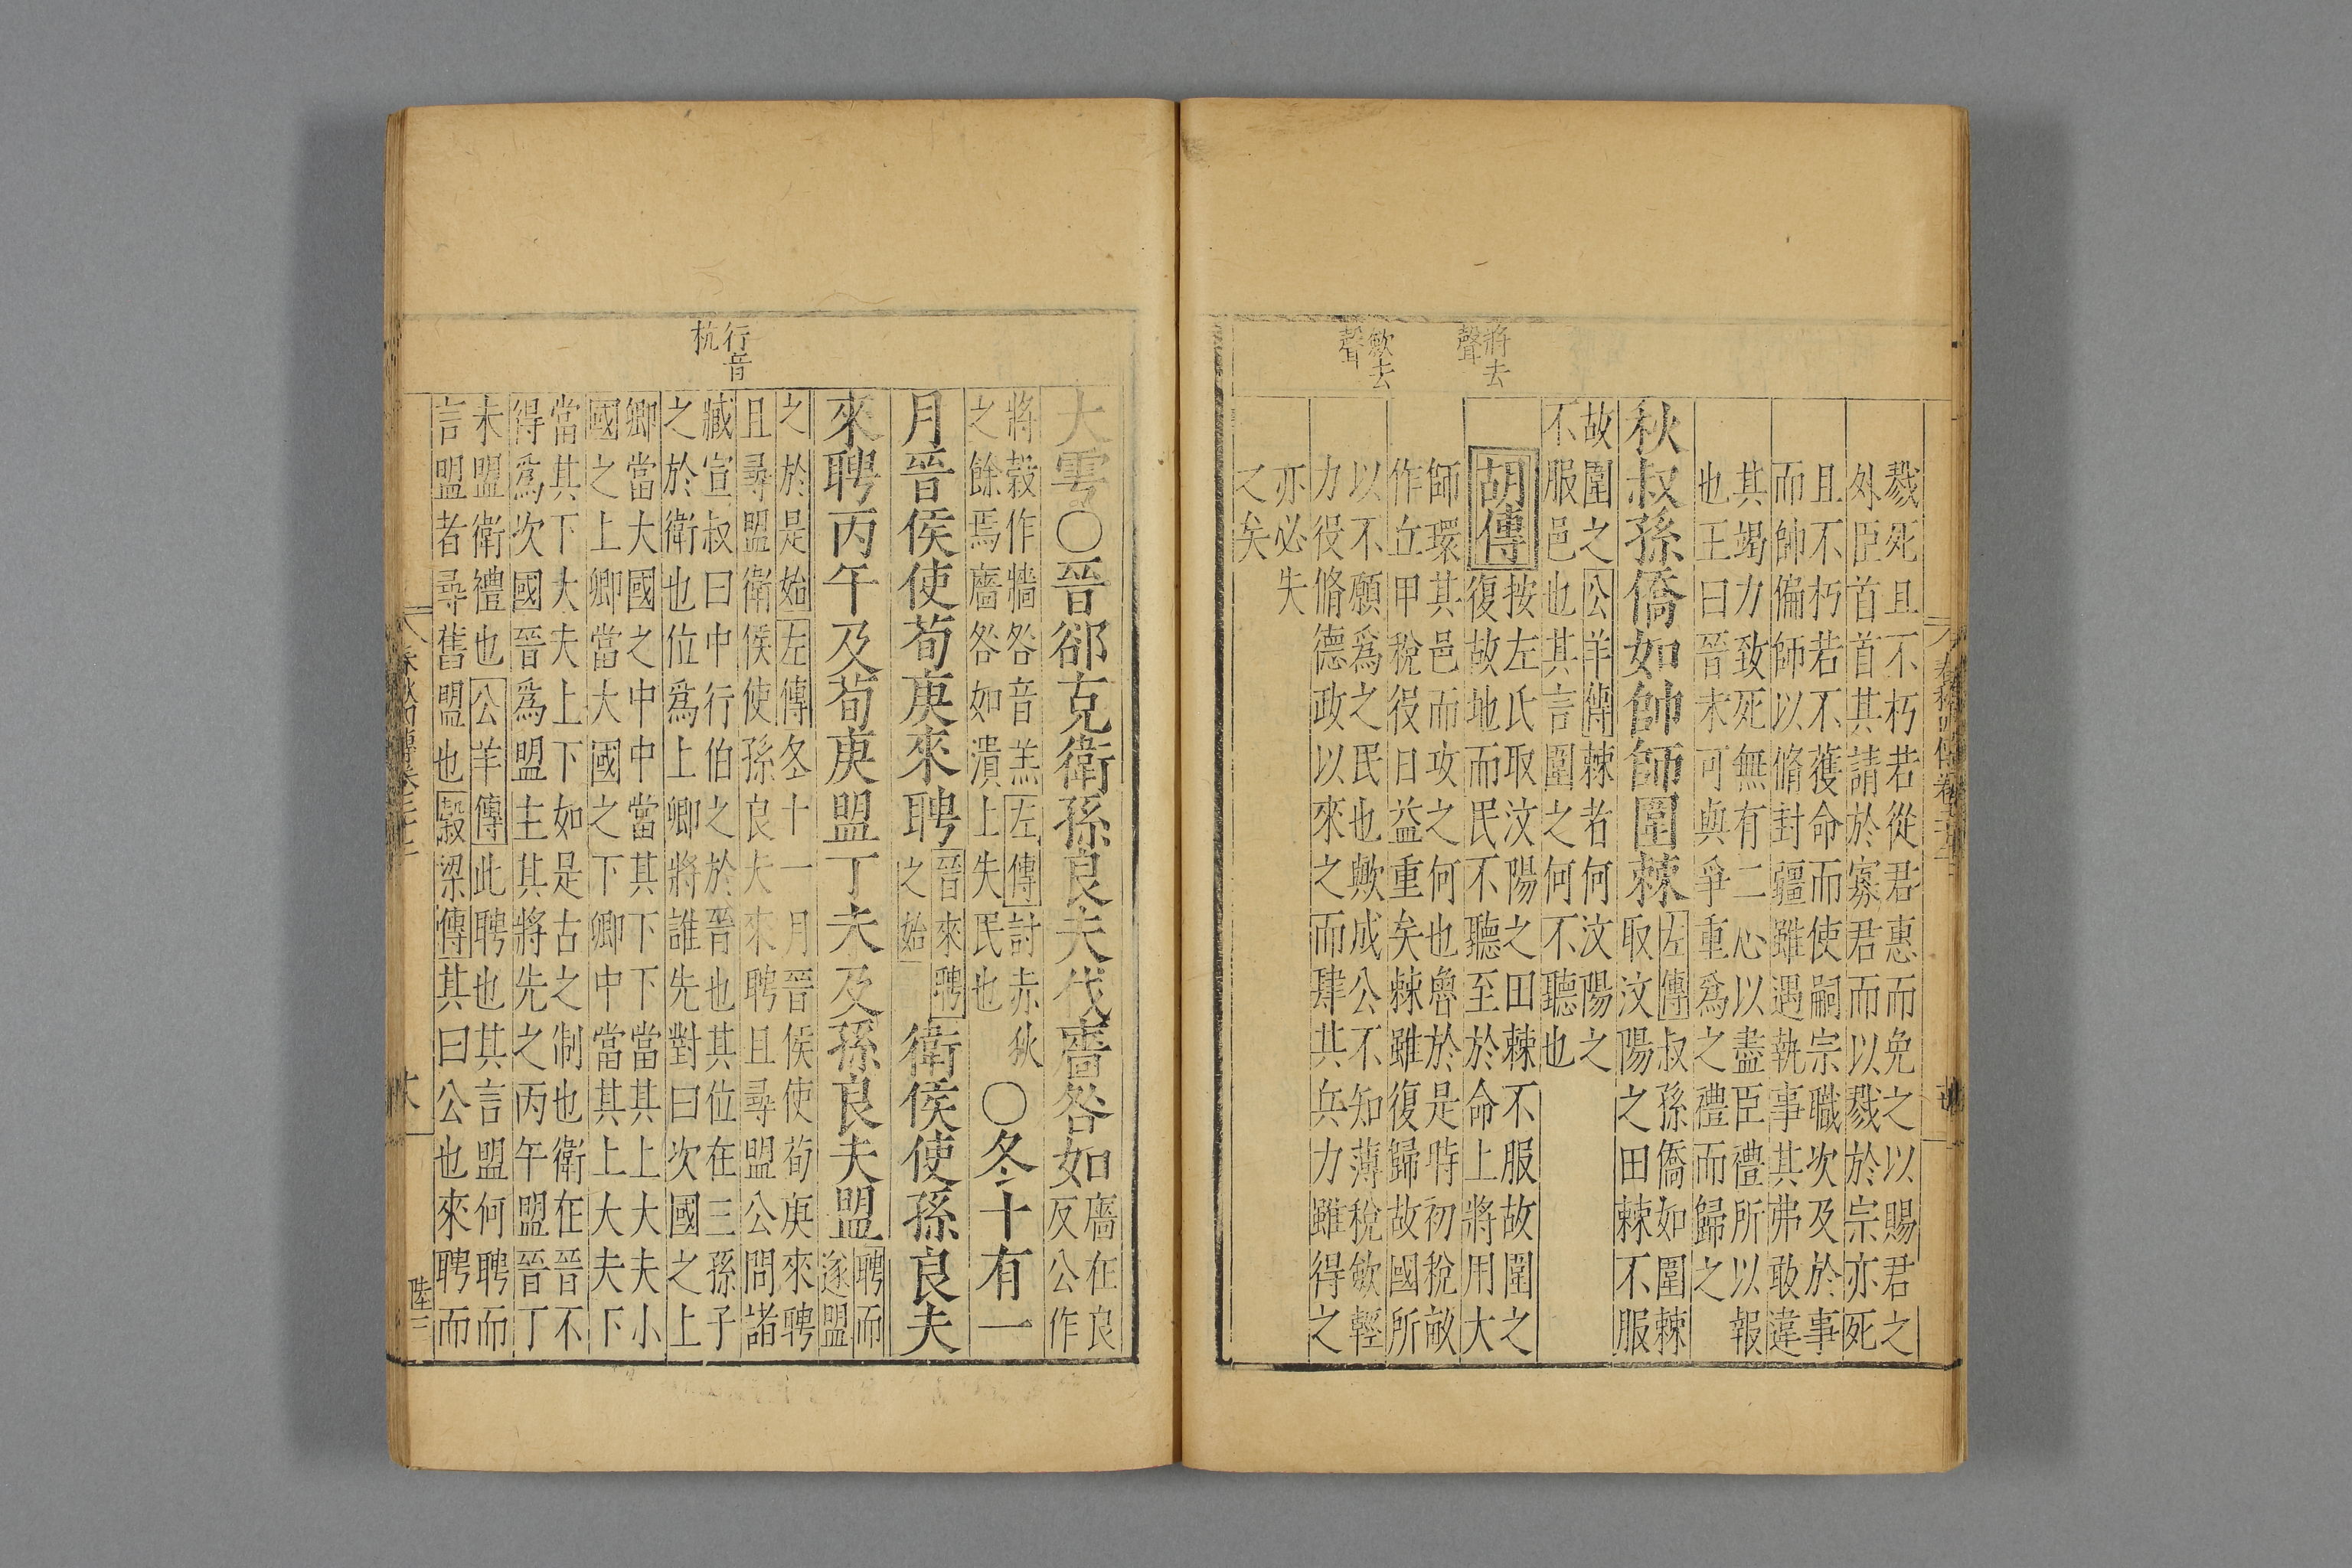 將去
聲
斂去
聲
戮死且不朽若從君惠而免之以賜君之
外臣首首其請於寡君而以戮於宗亦死
且不朽若不獲命而使嗣宗職次及於事
而帥偏師以脩封疆雖遇執事其弗敢違
其竭力致死無有二心以盡臣禮所以報
也王曰晉未可與爭重爲之禮而歸之
秋叔孫僑如帥師圍棘
左傳叔孫僑如圍棘
取汶陽之田棘不服
故圍之公羊傳棘者何汶陽之
不服邑也其言圍之何不聽也
胡傳
按左氏取汶陽之田棘不服故圍之
復故地而民不聽至於命上將用大
師環其邑而攻之何也魯於是時初稅畝
作丘甲稅役日益重矣棘雖復歸故國所
以不願爲之民也歟成公不知薄稅斂輕
力役脩德政以來之而肆其兵力雖得之
亦必失
之矣
行音
杭
大雩○晉郤克衛孫良夫伐廧咎如
廧在良
反公作
將穀作牆咎音羔左傳討赤狄
之餘焉廧咎如潰上失民也
○冬十有一
月晉侯使荀庚來聘
晉來聘
之始
衛侯使孫良夫
來聘丙午及荀庚盟丁未及孫良夫盟
聘而
遂盟
之於是始左傳冬十一月晉侯使荀庚來聘
且尋盟衛侯使孫良夫來聘且尋盟公問諸
臧宣叔曰中行伯之於晉也其位在三孫子
之於衛也位爲上卿將誰先對曰次國之上
卿當大國之中中當其下下當其上大夫小
國之上卿當大國之下卿中當其上大夫下
當其下大夫上下如是古之制也衛在晉不
得爲次國晉爲盟主其將先之丙午盟晉丁
未盟衛禮也公羊傳此聘也其言盟何聘而
言盟者尋舊盟也穀梁傳其曰公也來聘而
陸三